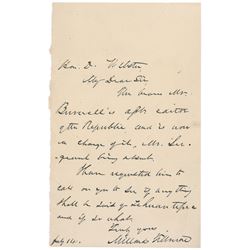 Hon. D. Webster
My Dear Sir,
The bearer Mr.
Burwell is asst. editor
of the Republic and is now
in charge of it, Mr. Sar-
gent being absent.
I have requested him to
call on you to see if any thing
shall be said of Tehuantepec
and if so what.
Truly yours
Millard Fillmore
July 14.